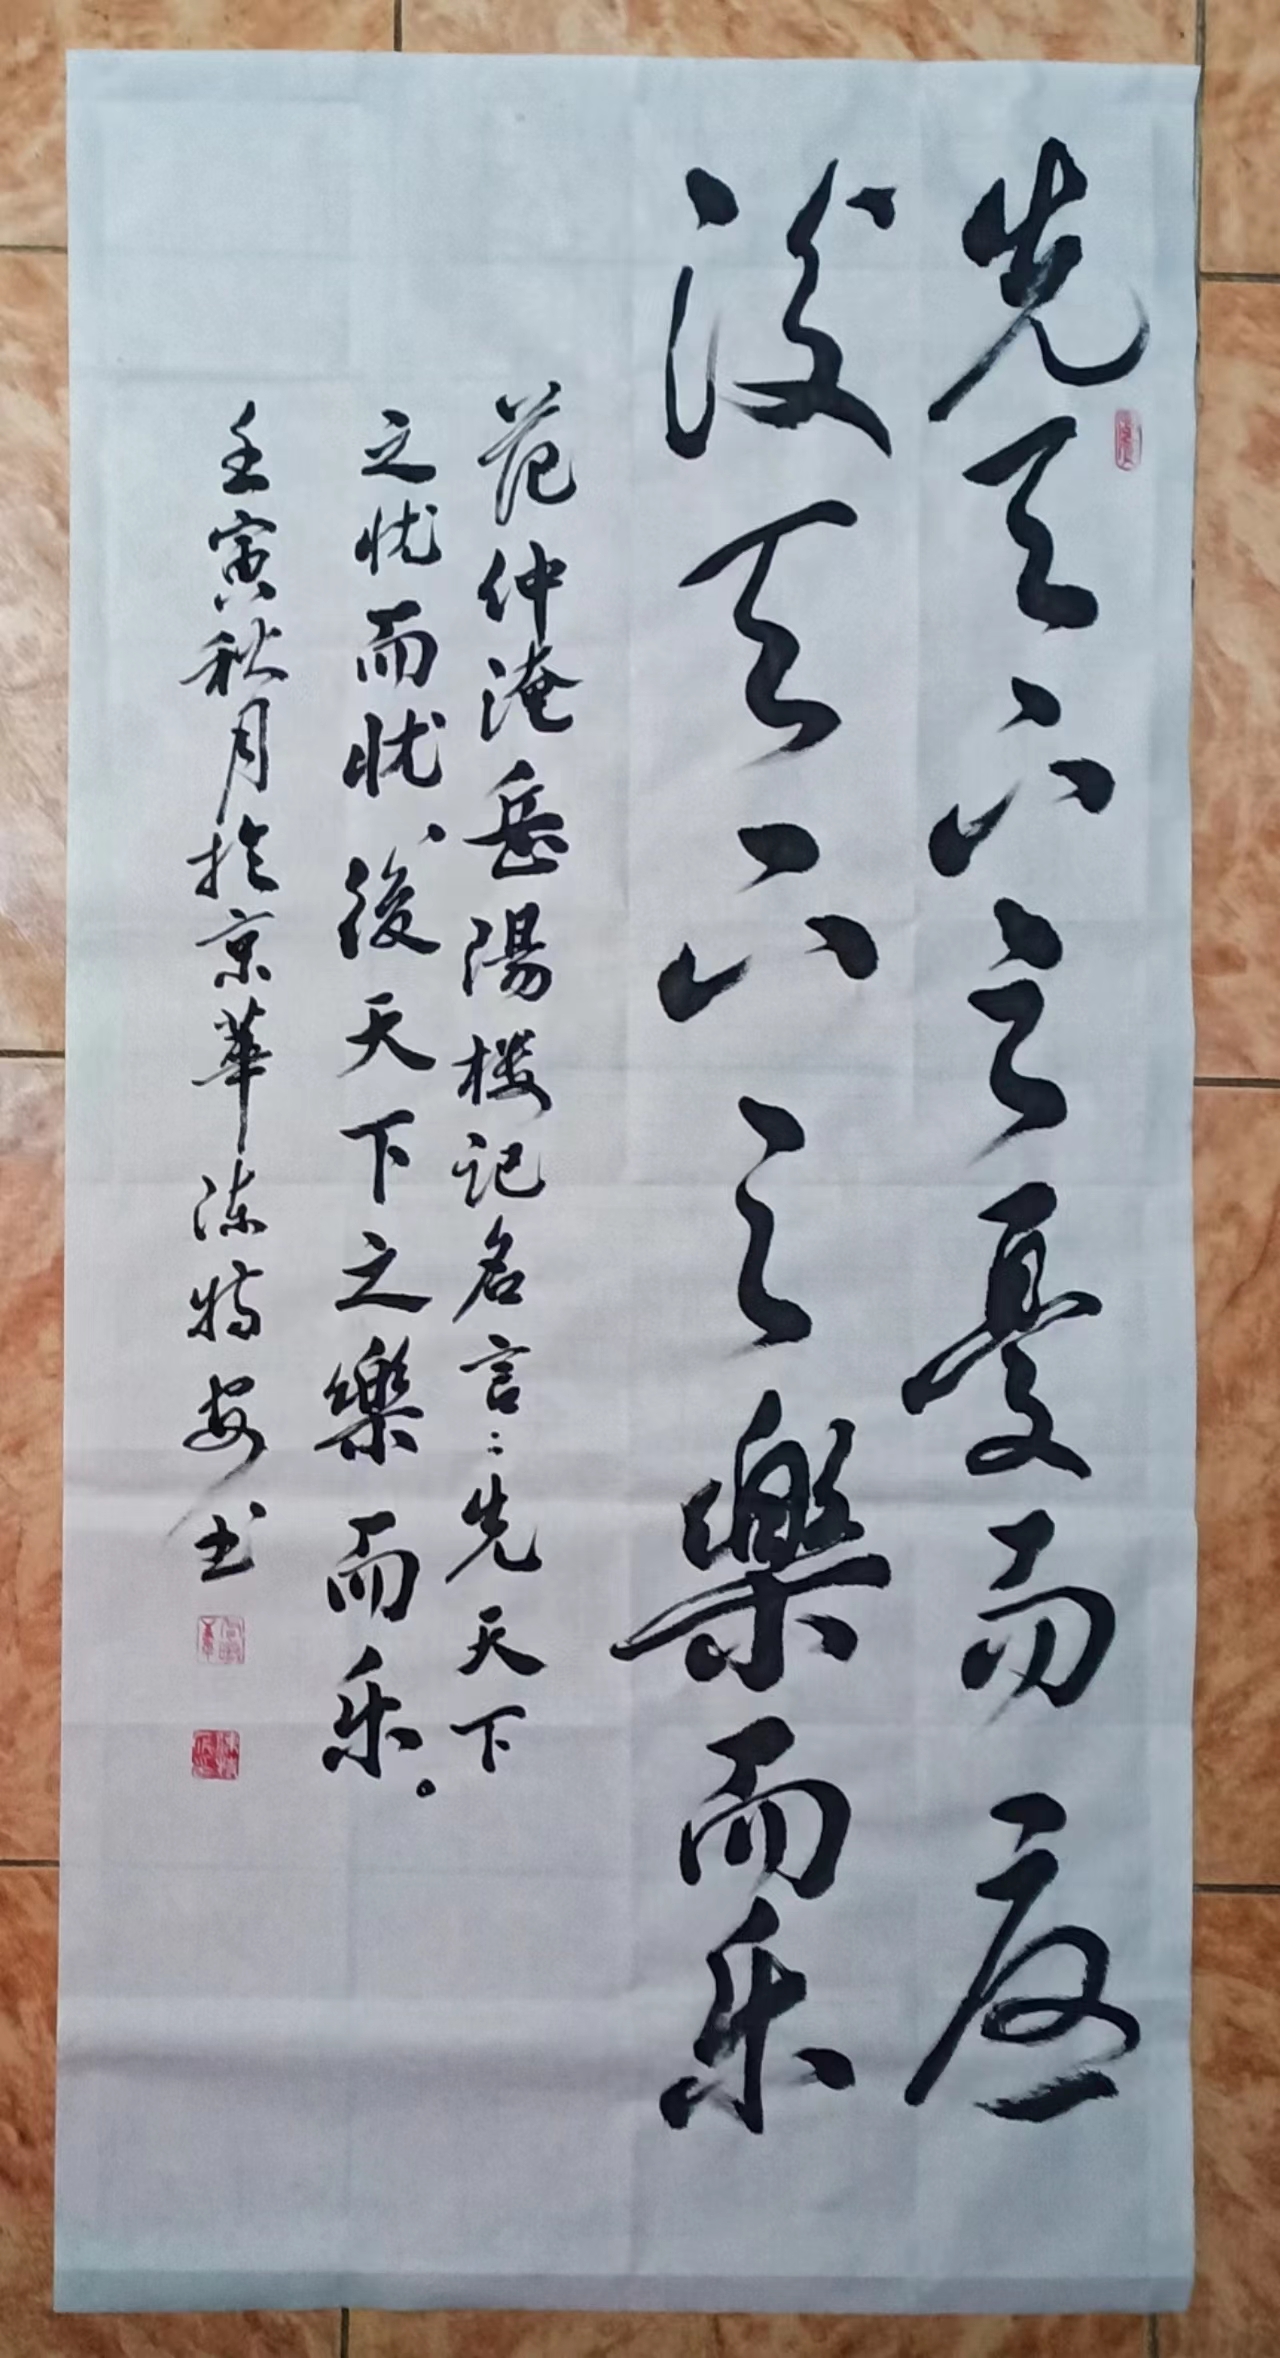 先天下之憂而憂
後天下之樂而乐
范仲淹岳陽楼记名言：先天下
之忧而忧、後天下之樂而乐。
壬寅秋月於京華陈特安书